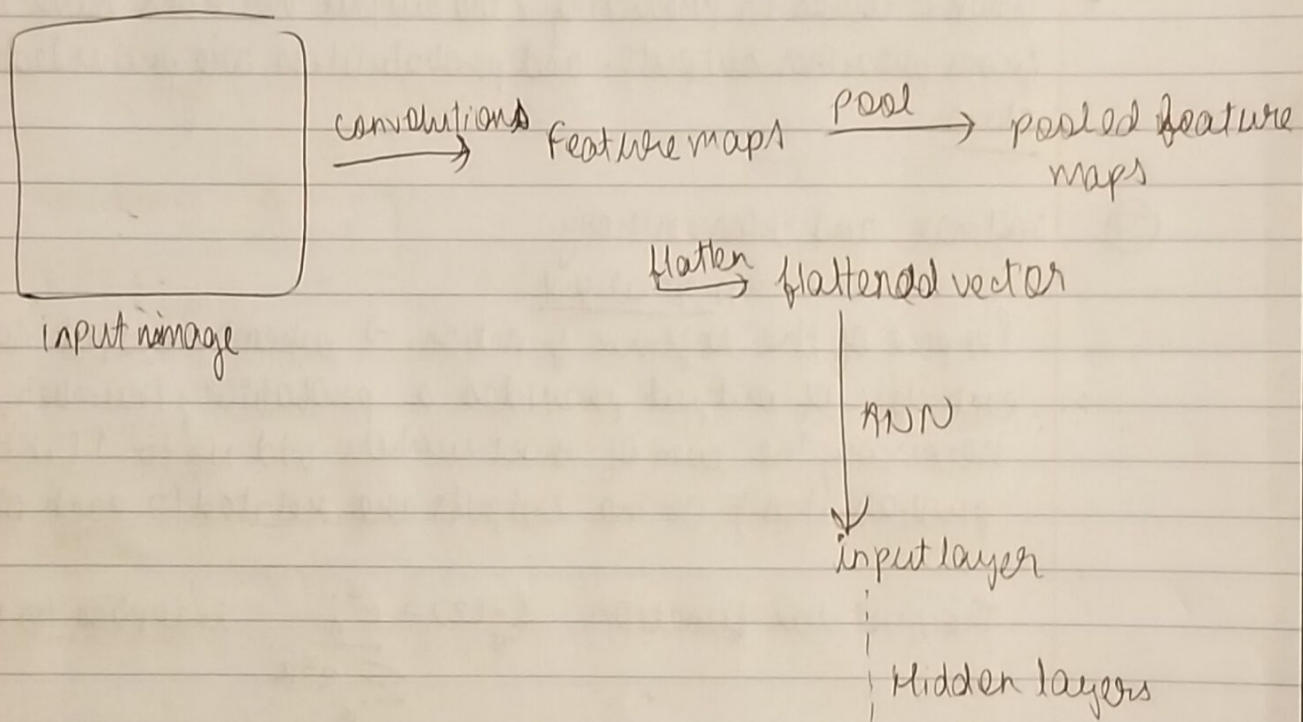 convolutions
Feature maps
Pool
pooled feature
maps
flatten
flattened vector
input image
ANN
input layer
Hidden layers